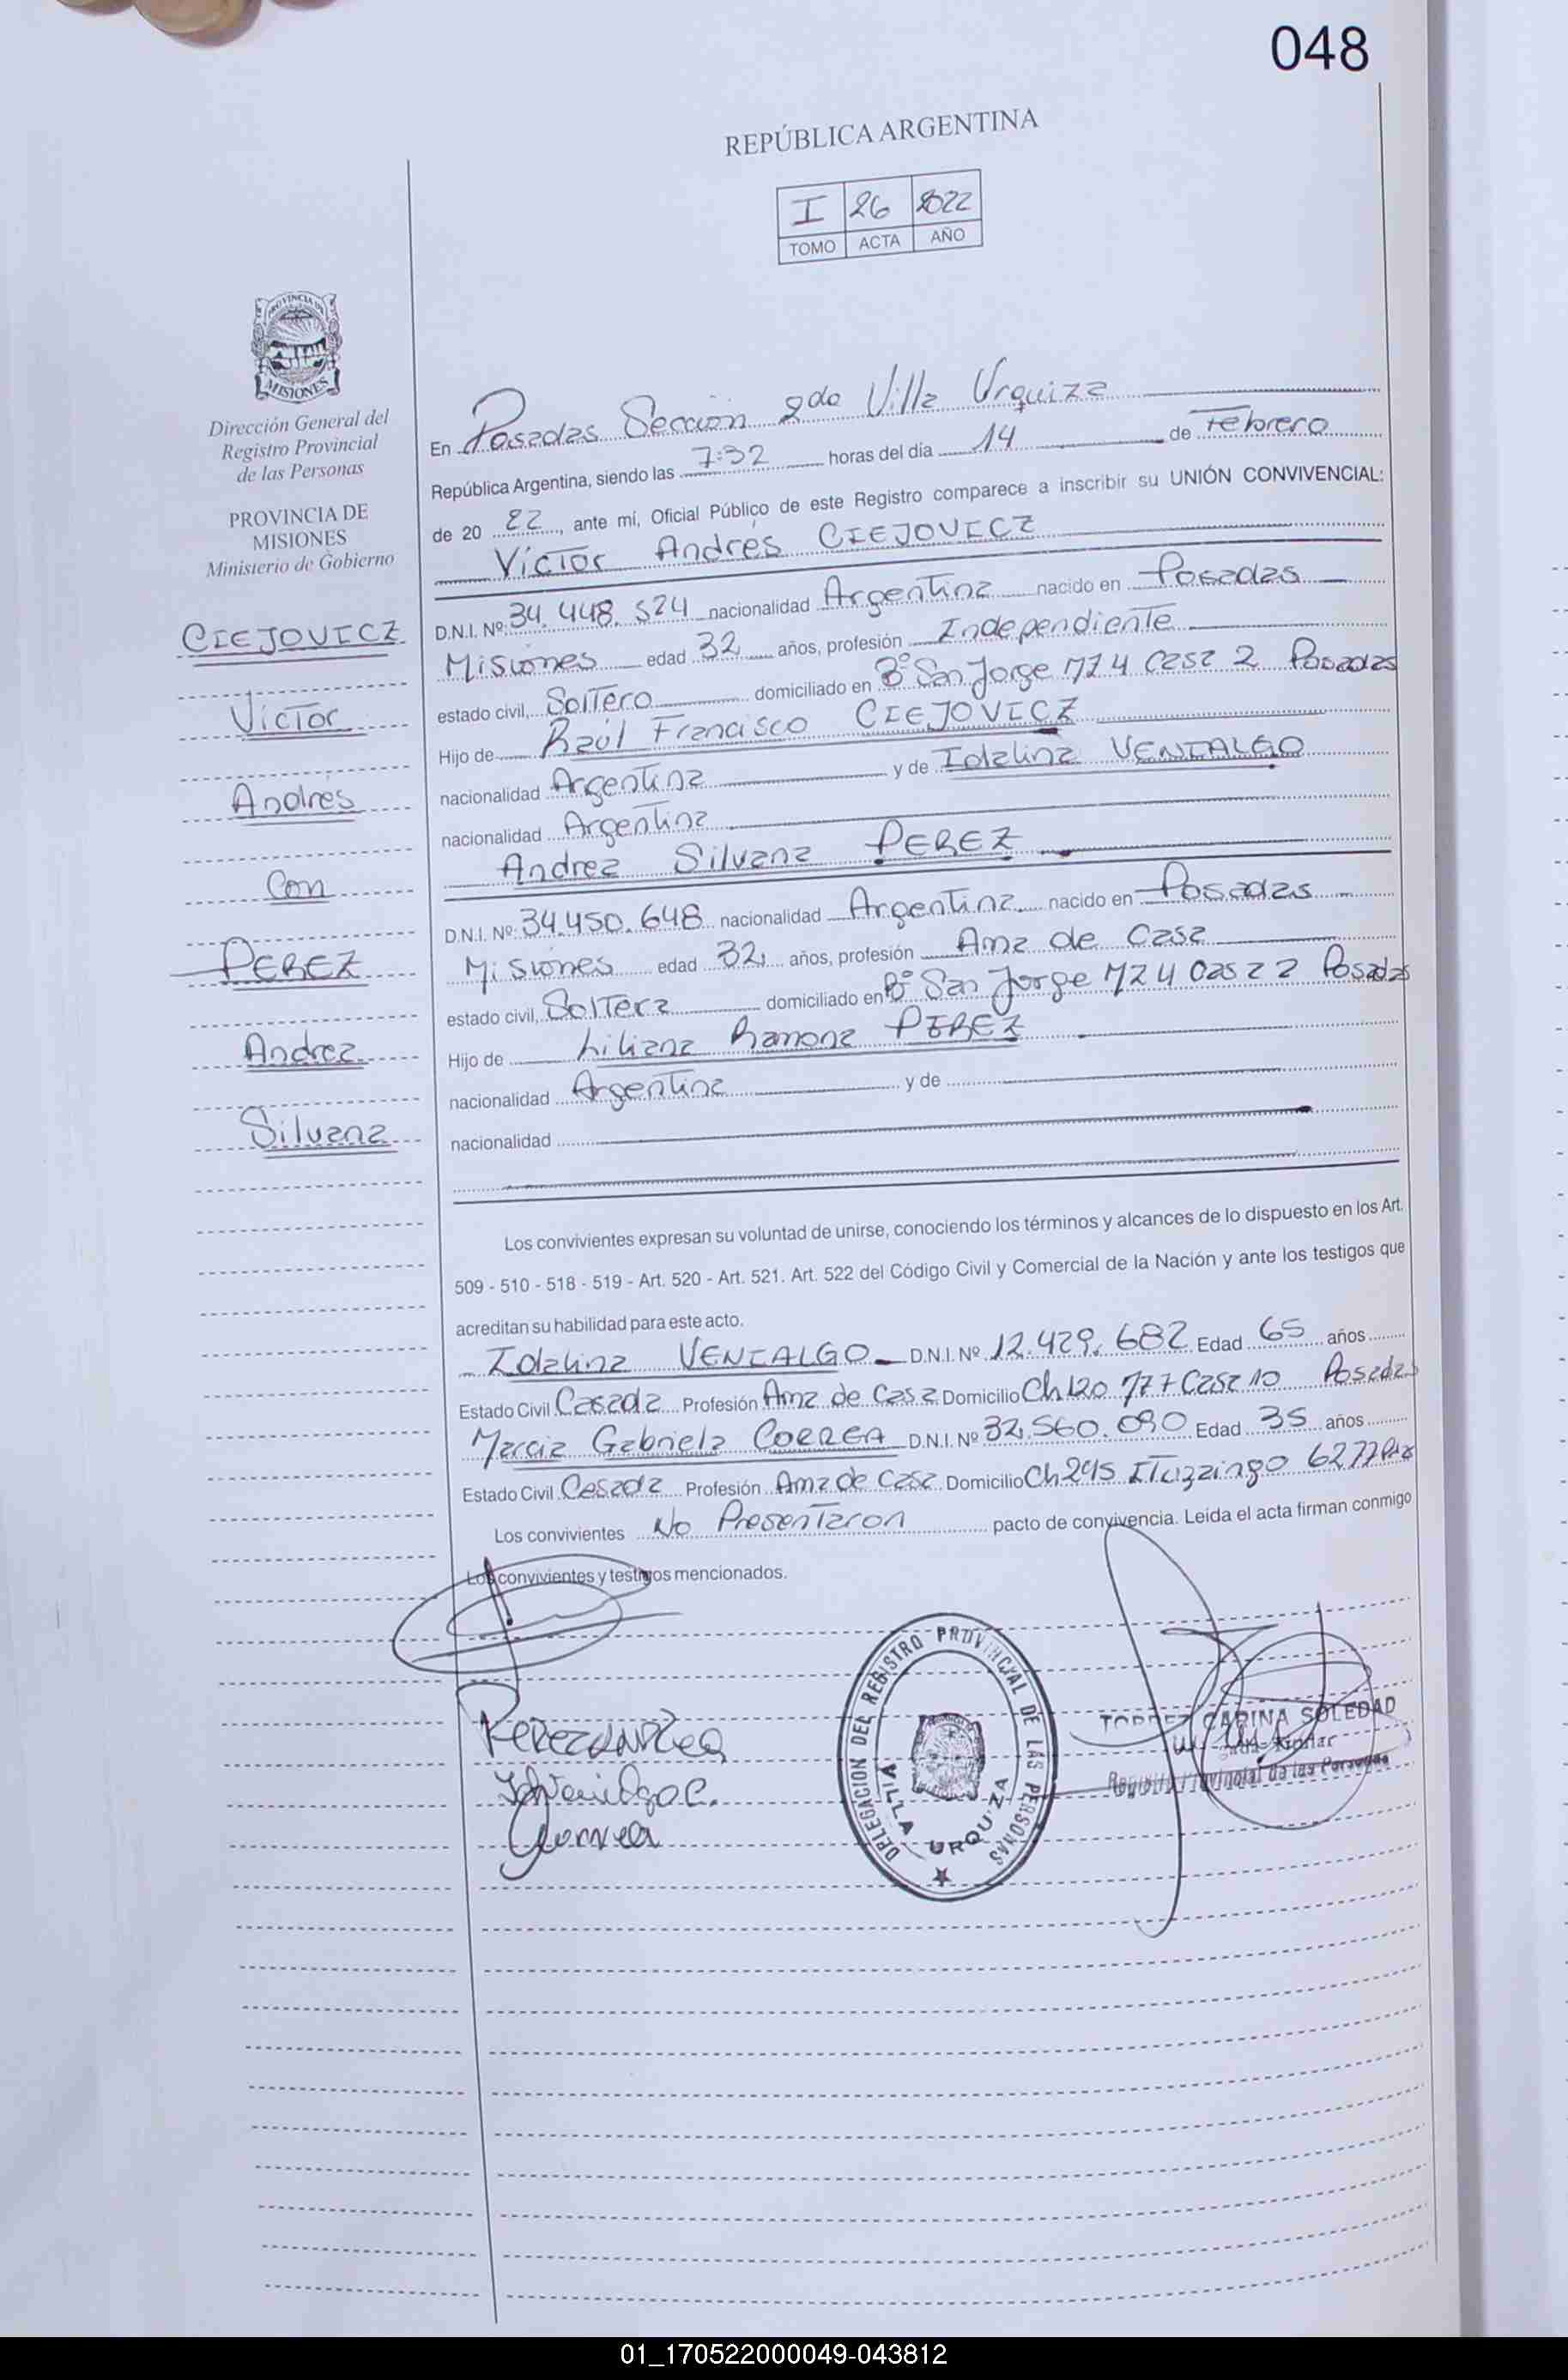 048
REPÚBLICA ARGENTINA
I 26 2022
TOMO ACTA AÑO
PROVINCIA DE MISIONES
Dirección General del
Registro Provincial
de las Personas
PROVINCIA DE
MISIONES
Ministerio de Gobierno
CIEJOVICZ
Victor
Andres
Con
PEREZ
Andrea
Silvana
En Posadas Sección 2do Villa Urquiza
República Argentina, siendo las 7:32 horas del día 14 de Febrero
de 20 22, ante mí, Oficial Público de este Registro comparece a inscribir su UNIÓN CONVIVENCIAL:
Victor Andres CIEJOVICZ
D.N.I. Nº: 34.448.524 nacionalidad Argentina nacido en Posadas
Misiones edad 32 años, profesión Independiente
estado civil, Soltero domiciliado en Bº San Jorge MZ 4 Casa 2 Posadas
Hijo de Raúl Francisco CIEJOVICZ
nacionalidad Argentina y de Idalina VENIALGO
nacionalidad Argentina
Andrea Silvana PEREZ
D.N.I. Nº: 34.450.648 nacionalidad Argentina nacido en Posadas
Misiones edad 32 años, profesión Ama de Casa
estado civil, Soltera domiciliado en Bº San Jorge MZ 4 Casa 2 Posadas
Hijo de Liliana Ramona PEREZ
nacionalidad Argentina y de
nacionalidad
Los convivientes expresan su voluntad de unirse, conociendo los términos y alcances de lo dispuesto en los Art.
509 - 510 - 518 - 519 - Art. 520 - Art. 521. Art. 522 del Código Civil y Comercial de la Nación y ante los testigos que
acreditan su habilidad para este acto.
Idalina VENIALGO D.N.I. Nº 12.429.682 Edad 65 años
Estado Civil Casada Profesión Ama de Casa Domicilio Ch 120 Casa 10 Posadas
Marcia Gabriela CORREA D.N.I. Nº 32.560.090 Edad 35 años
Estado Civil Casada Profesión Ama de Casa Domicilio Ch 245 Ituzaingo 6277
Los convivientes No Presentaron pacto de convivencia. Leída el acta firman conmigo
Los convivientes y testigos mencionados.
Perez Andrea
Correa
DELEGACION DEL REGISTRO PROVINCIAL DE LAS PERSONAS
VILLA URQUIZA
TORREZ CARINA SOLEDAD
Registro Provincial de las Personas
01_170522000049-043812